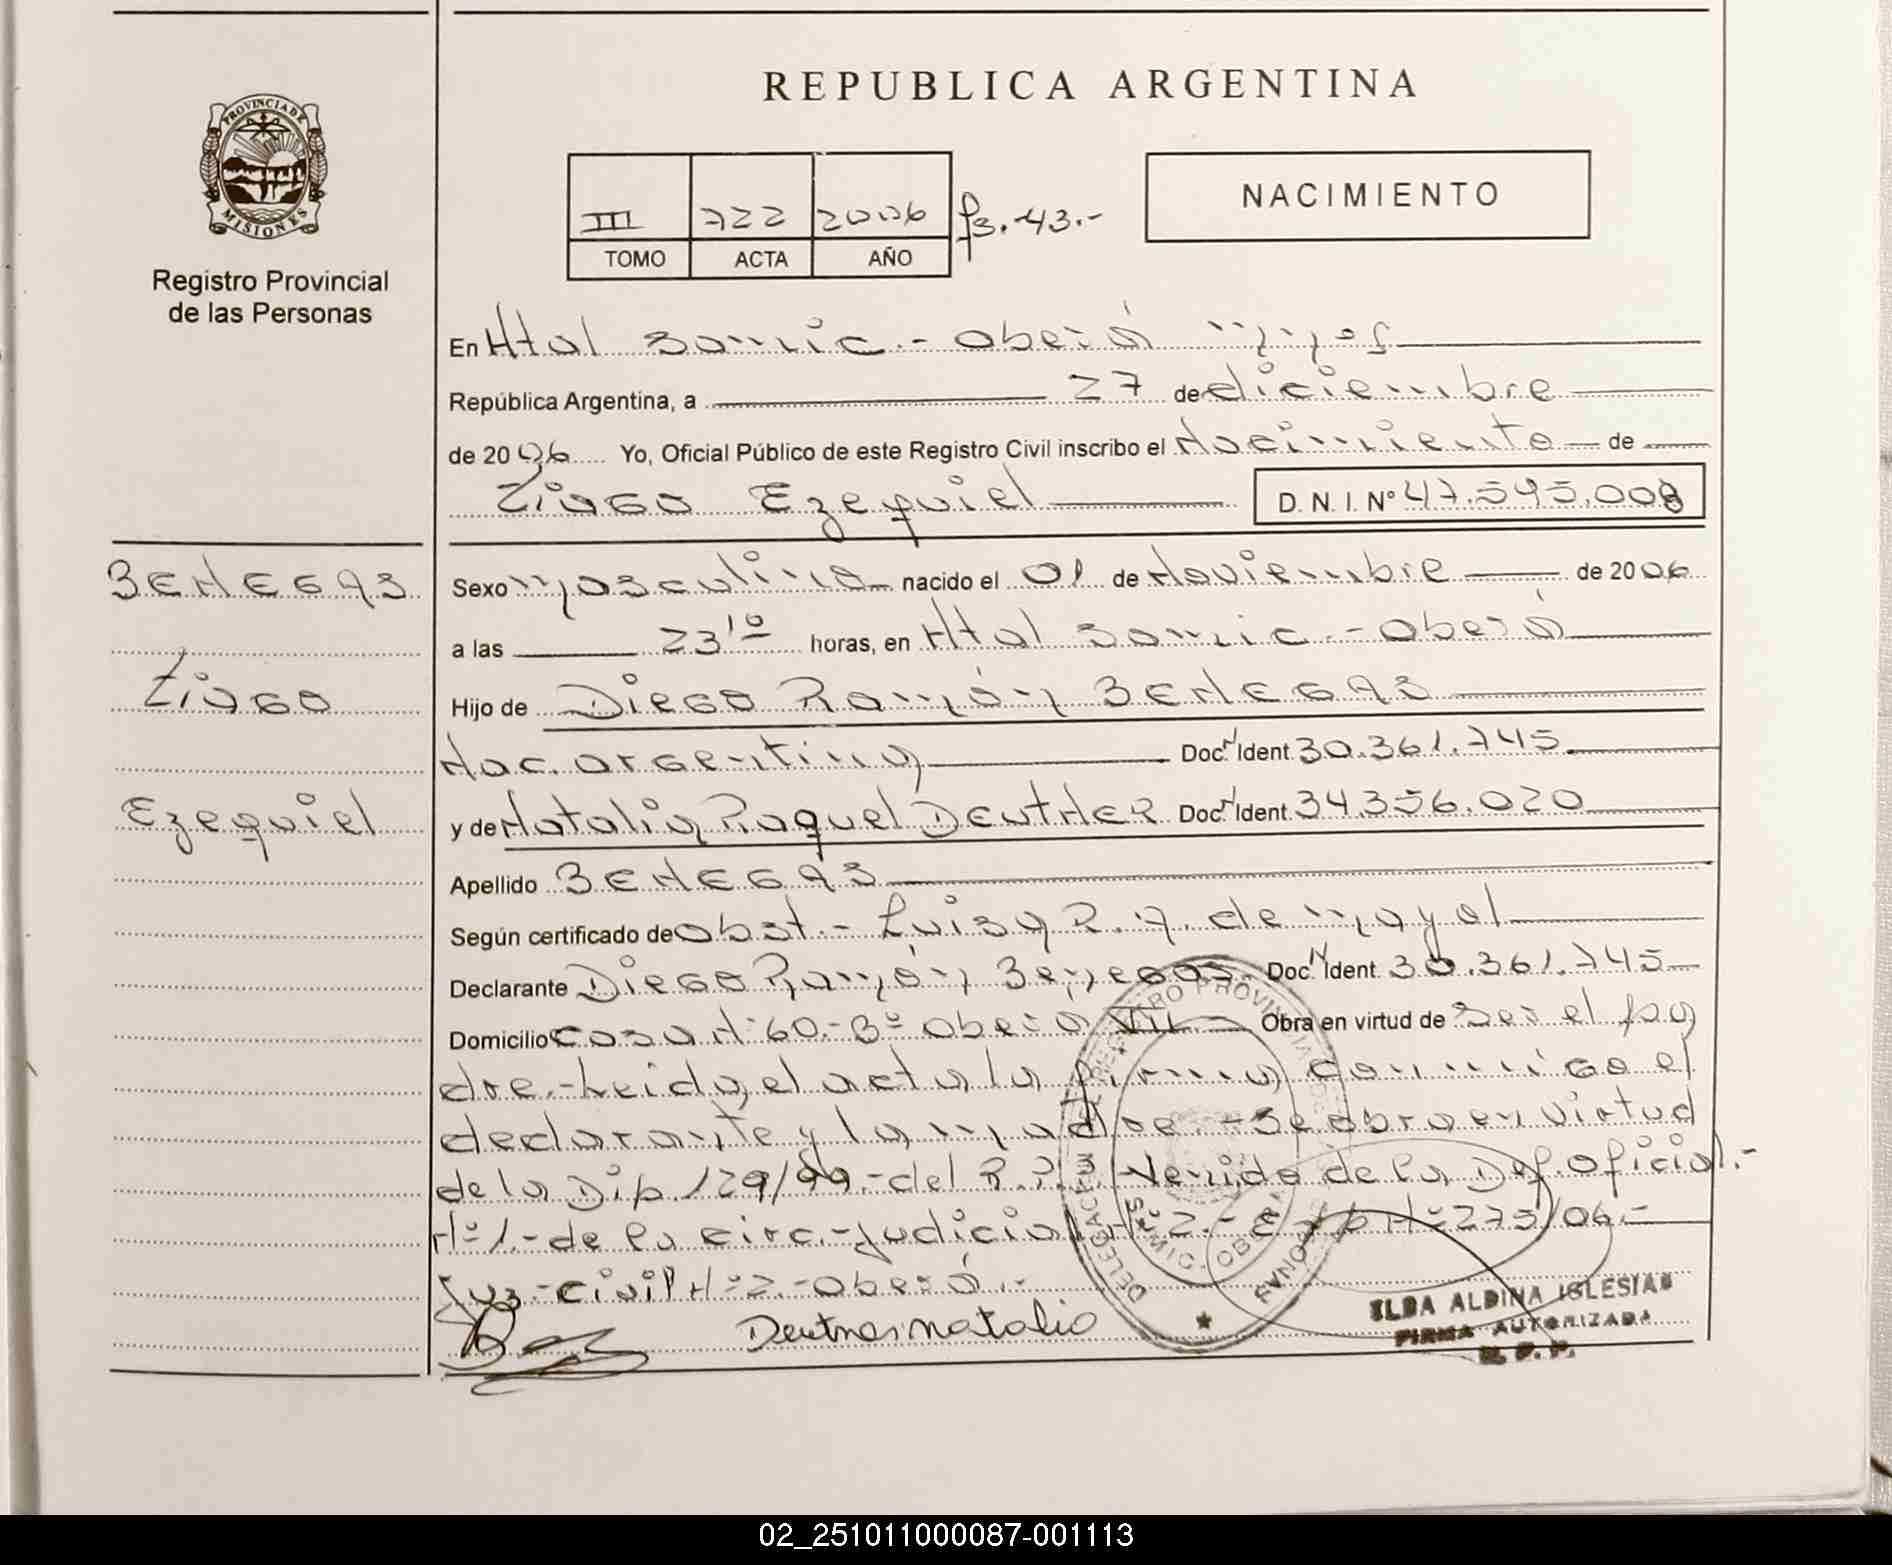 REPUBLICA ARGENTINA
PROVINCIA DE
MISIONES
Registro Provincial
de las Personas
III 722 2006 fs.-43.-
TOMO ACTA AÑO
NACIMIENTO
En Htal Samic.- Oberá Mnes
República Argentina, a 27 de diciembre
de 2006 Yo, Oficial Público de este Registro Civil inscribo el Nacimiento de
Tiago Ezequiel D. N. I. Nº 47.595.008
BENEGAS
Tiago
Ezequiel
Sexo masculino nacido el 01 de Noviembre de 2006
a las 23 10 horas, en Htal Samic.- Oberá
Hijo de Diego Ramón BENEGAS
Nac. argentina Doc. N Ident. 30.361.745
y de Natalia Raquel DEUTNER Doc. N Ident. 34.356.020
Apellido BENEGAS
Según certificado de Obst.- Luisa R. A. de Mayol
Declarante Diego Ramón Benegas Doc. N Ident. 30.361.745
Domicilio Casa Nº 60.- Bº Oberá VII Obra en virtud de Ser el pa
dre.- Leida el acta la firma conmigo el
declarante y la madre.- Se obra en virtud
de la Dip. 129/99.- del R.P. Venido de la Def. Oficial.-
Nº 1.- de la circ.- Judicial Nº 2.- Exp Nº 275/06.-
Juz.- Civil Nº 2.- Oberá.-
Deutner natalia
DELEGACION REGISTRO PROVINCIAL DE LAS PERSONAS
SAMIC - OBERA
ELDA ALDINA IGLESIAS
FIRMA AUTORIZADA
R. P. P.
02_251011000087-001113